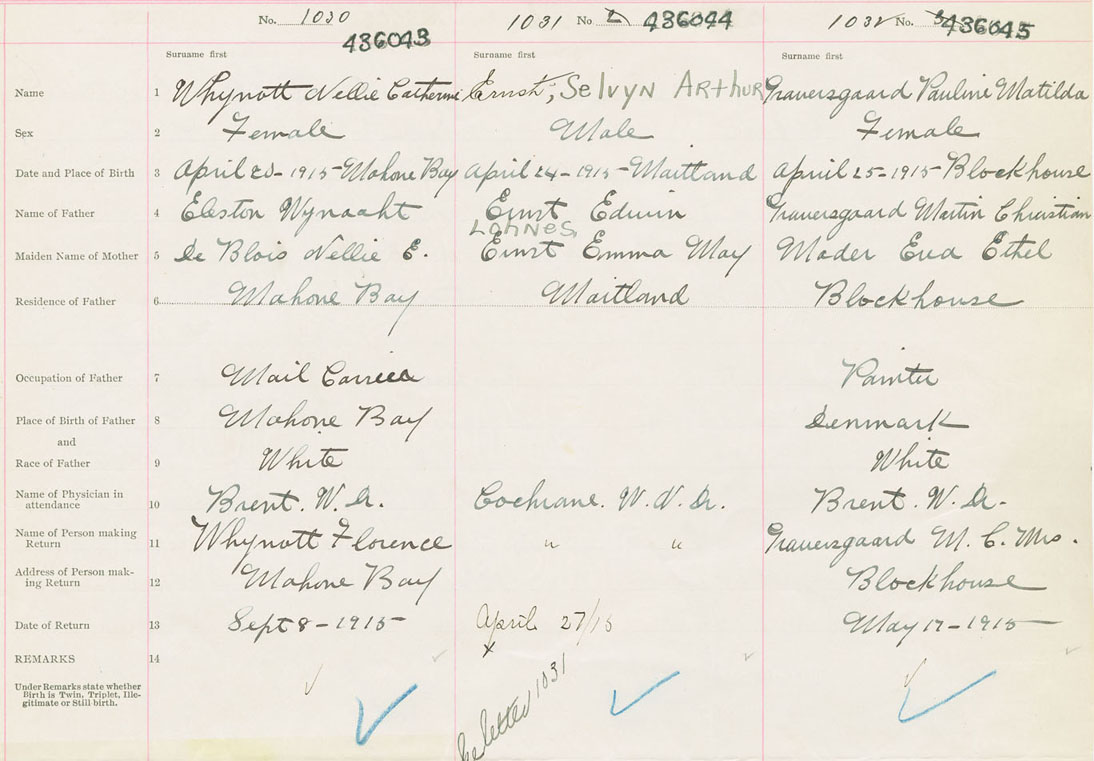 No. 1030 1031 No 2 436044 1032 No. 3 436045
436043
Surname first Surname first Surname first
Name 1 Whynott Nellie Catherine Ernst, Selvyn Arthur Grauersgaard Pauline Matilda
Sex 2 Female Male Female
Date and Place of Birth 3 April - 1915 - Mahone Bay April 24 - 1915 - Maitland April 25 - 1915 - Blockhouse
Name of Father 4 Eleston Wynaaht Ernst Edwin Grauersgaard Martin Christian
LOHNES
Maiden Name of Mother 5 De Blois Nellie E. Ernst Emma May Mader Eva Ethel
Residence of Father 6 Mahone Bay Maitland Blockhouse
Occupation of Father 7 Mail Carrier Painter
Place of Birth of Father 8 Mahone Bay Denmark
and
Race of Father 9 White White
Name of Physician in
attendance 10 Brent. W. Dr. Cochrane. W. N. Dr. Brent. W. Dr.
Name of Person making
Return 11 Whynott Florence " " Grauersgaard M. C. Mrs.
Address of Person mak-
ing Return 12 Mahone Bay Blockhouse
Date of Return 13 Sept 8 - 1915 April 27/15 May 17 - 1915
x
REMARKS 14
Under Remarks state whether
Birth is Twin, Triplet, Ille-
gitimate or Still birth.
See letter 1031